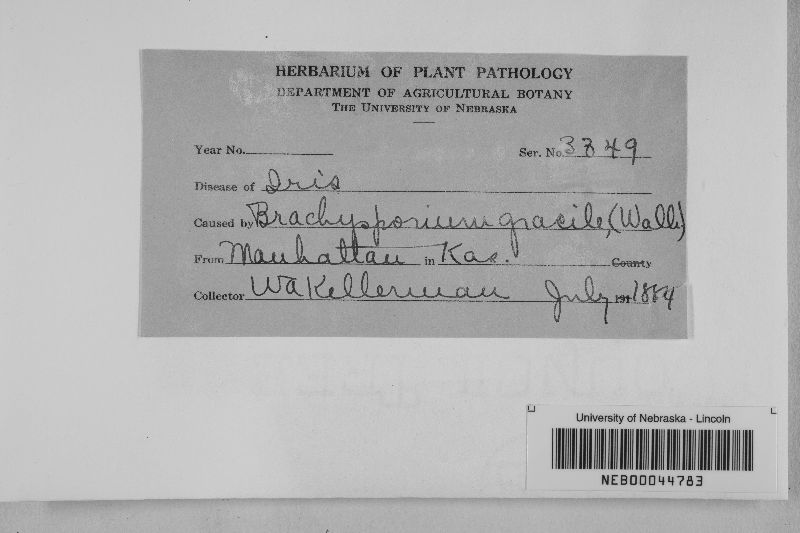 HERBARIUM OF PLANT PATHOLOGY
DEPARTMENT OF AGRICULTURAL BOTANY
THE UNIVERSITY OF NEBRASKA
Year No. Ser. No. 3349
Disease of Iris
Caused by Brachysporium gracile, (Wallr)
From Manhattan in Kas. County
Collector WA Kellerman July 191 1884
University of Nebraska - Lincoln
NEB00044783